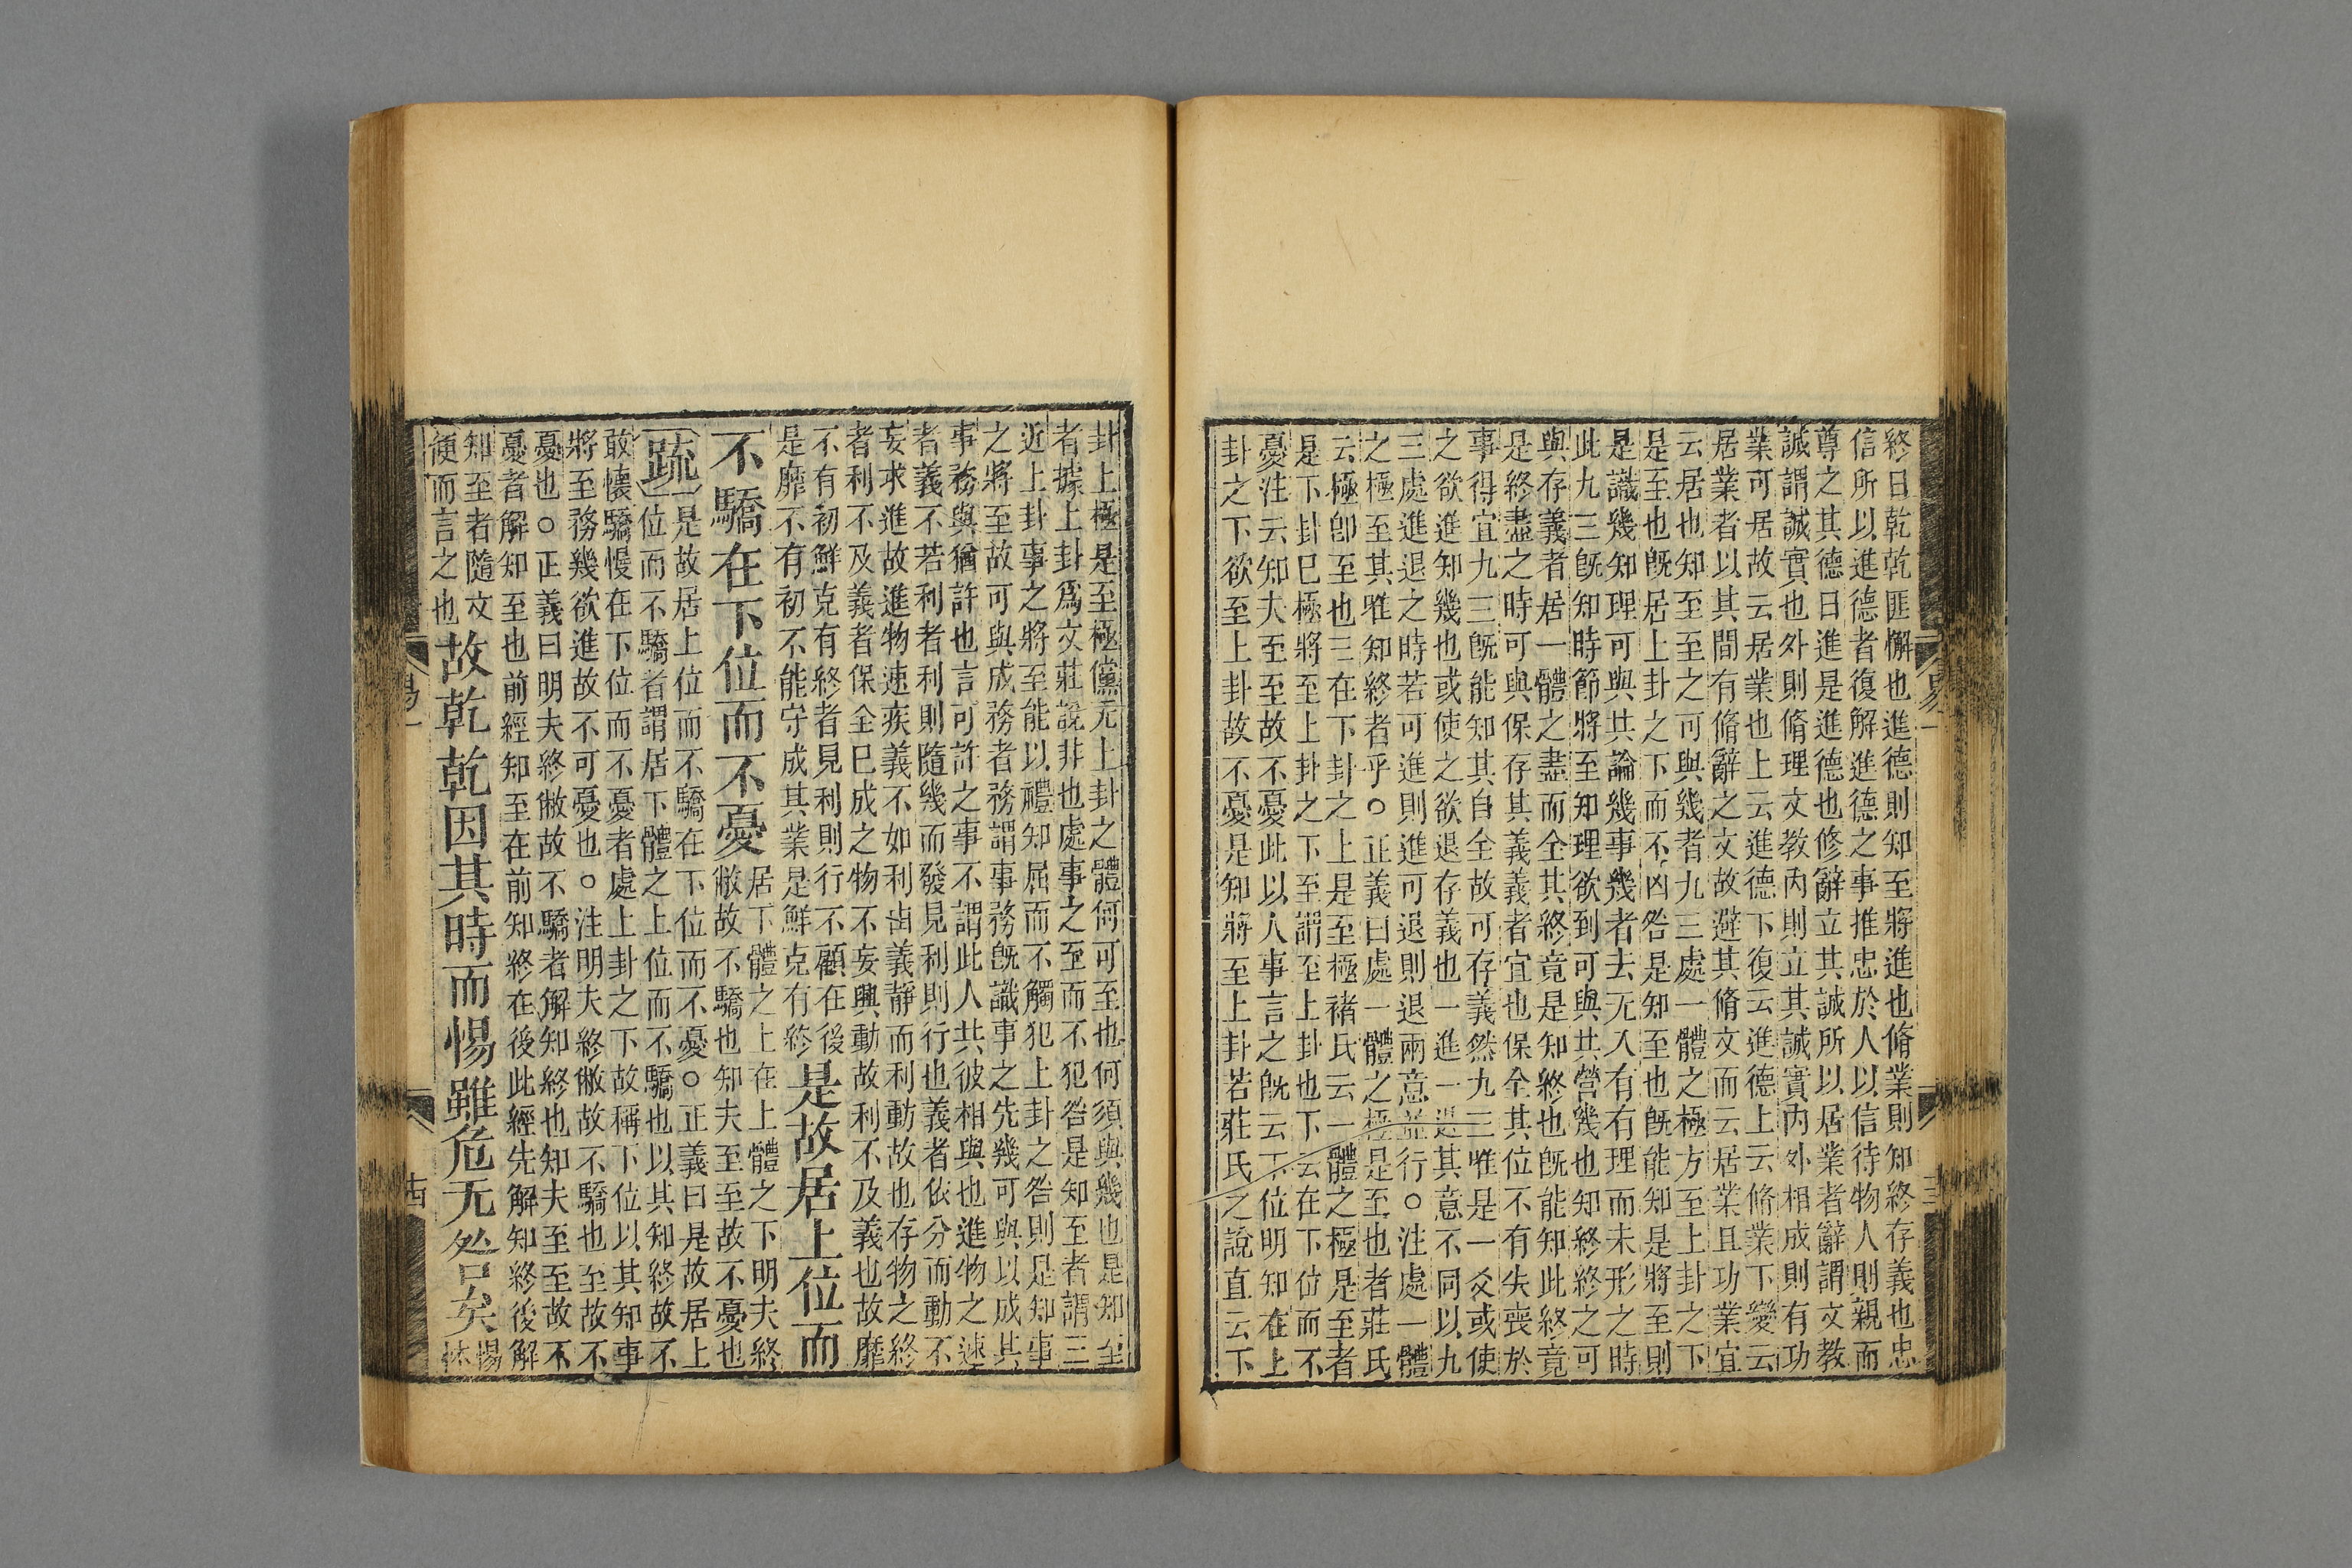 終日乾乾匪懈也進德則知至將進也脩業則知終存義也忠
信所以進德者復解進德之事推忠於人以信待物人則親而
尊之其德日進是進德也修辭立其誠所以居業者辭謂文教
誠謂誠實也外則脩理文教內則立其誠實內外相成則有功
業可居故云居業也上云進德下復云進德上云脩業下變云
居業者以其間有脩辭之文故避其脩文而云居業且功業宜
云居也知至至之可與幾者九三處一體之極方至上卦之下
是至也旣居上卦之下而不凶咎是知至也旣能知是將至則
是識幾知理可與共論幾事幾者去无入有有理而未形之時
此九三旣知時節將至知理欲到可與共營幾也知終終之可
與存義者居一體之盡而全其終竟是知終也旣能知此終竟
是終盡之時可與保存其義義者宜也保全其位不有失喪於
事得宜九三旣能知其自全故可存義然九三唯是一爻或使
之欲進知幾也或使之欲退存義也一進一退其意不同以九
三處進退之時若可進則進可退則退兩意並行○注處一體
之極至其唯知終者乎○正義曰處一體之極是至也者莊氏
云極卽至也三在下卦之上是至極褚氏云一體之極是至者
是下卦已極將至上卦之下至謂至上卦也下云在下位而不
憂注云知夫至至故不憂此以人事言之旣云下位明知在上
卦之下欲至上卦故不憂是知將至上卦若莊氏之說直云下
卦上極是至極儻无上卦之體何可至也何須與幾也是知至
者據上卦爲文莊說非也處事之至而不犯咎是知至者謂三
近上卦事之將至能以禮知屈而不觸犯上卦之咎則是知事
之將至故可與成務者務謂事務旣識事之先幾可與以成其
事務與猶許也言可許之事不謂此人共彼相與也進物之速
者義不若利者利則隨幾而發見利則行也義者依分而動不
妄求進故進物速疾義不如利由義靜而利動故也存物之終
者利不及義者保全已成之物不妄興動故利不及義也故靡
不有初鮮克有終者見利則行不顧在後
是靡不有初不能守成其業是鮮克有終
是故居上位而
不驕在下位而不憂
居下體之上在上體之下明夫終
敝故不驕也知夫至至故不憂也
疏
是故居上位而不驕在下位而不憂○正義曰是故居上
位而不驕者謂居下體之上位而不驕也以其知終故不
敢懷驕慢在下位而不憂者處上卦之下故稱下位以其知事
將至務幾欲進故不可憂也○注明夫終敝故不驕也至故不
憂也○正義曰明夫終敝故不驕者解知終也知夫至至故不
憂者解知至也前經知至在前知終在後此經先解知終後解
知至者隨文
便而言之也
故乾乾因其時而惕雖危无咎矣
惕
怵
易一
易一
十四